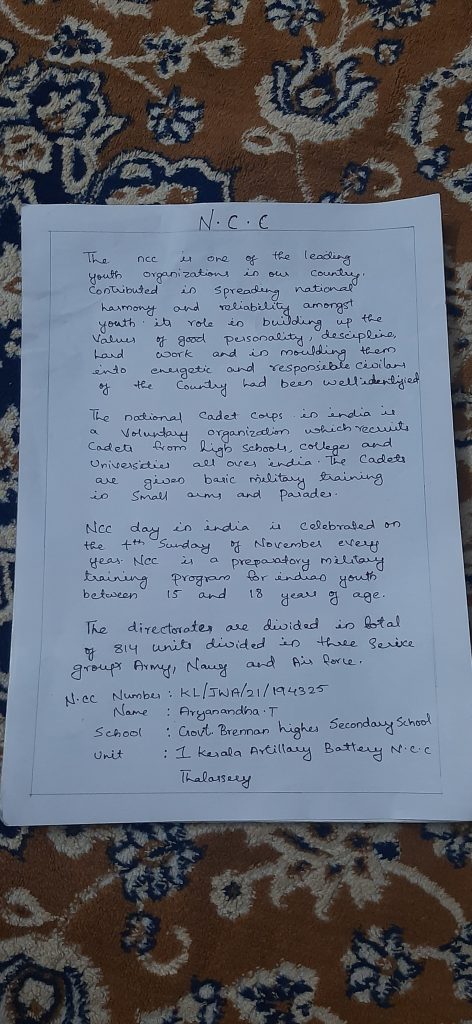 N.C.C
The ncc is one of the leading
youth organizations in our country.
Contributed in spreading national
harmony and reliability amongst
youth. its role in building up the
values of good personality, descipline,
hard work and in moulding them
into energetic and responsible civilans
of the Country had been well identified
The national Cadet Corps in india is
a Voluntary organization which recruits
Cadets from high schools, colleges and
Universities all over india. The Cadets
are given basic military training
in Small arms and Parades.
NCC day in india is Celebrated on
the 4th Sunday of November every
year. Ncc is a preparatory military
training program for indian youth
between 15 and 18 years of age.
The directorates are divided in total
of 814 units divided in three Service
groups Army, Navy and Air force.
N.CC Number : KL/JWA/21/194325
Name : Aryanandha.T
School : Govt. Brennan higher Secondary School
Unit : 1 Kerala Artillary Battery N.C.C
Thalassery